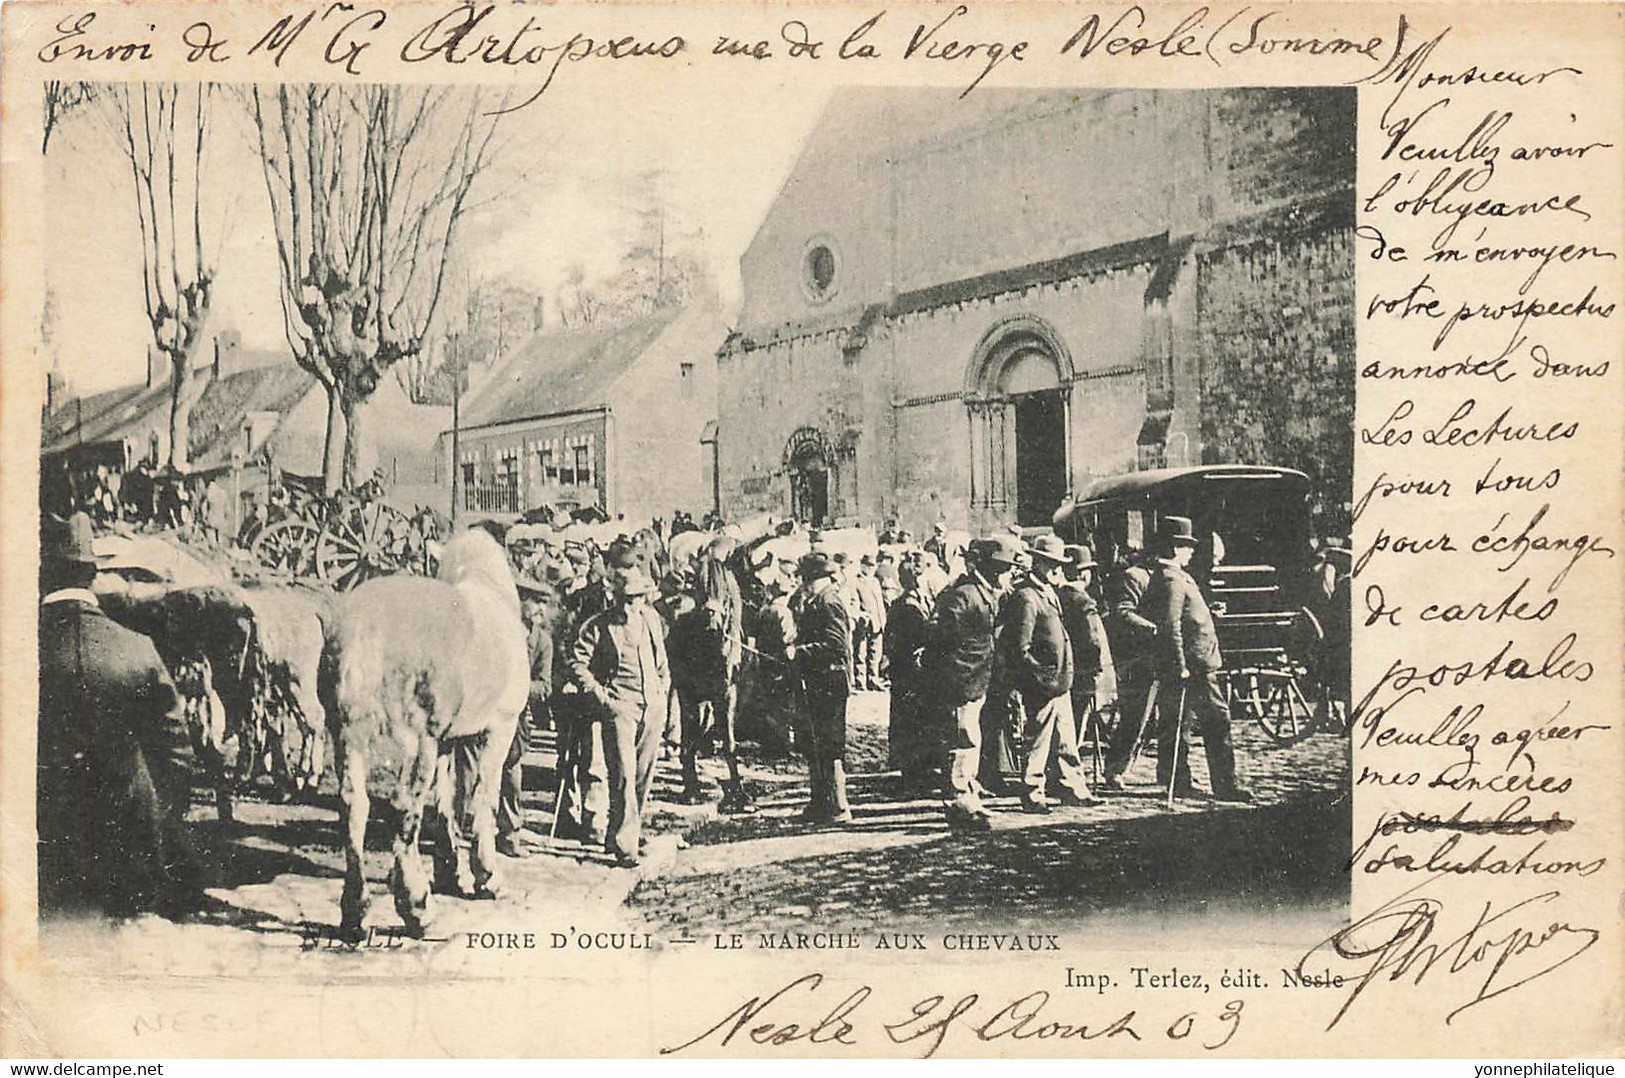 Envoi de Mr G Artopoeus rue de la Vierge Nesle (Somme)
Monsieur
Veuillez avoir
l'obligeance
de m'envoyer
votre prospectus
annoncé dans
Les Lectures
pour tous
pour échange
de cartes
postales
Veuillez agréer
mes sincères
postales
salutations
NESLE — FOIRE D'OCULI — LE MARCHÉ AUX CHEVAUX
Imp. Terlez, édit. Nesle
Artopoeus
Nesle 25 Aout 03
NESLE
yonnephilatelique